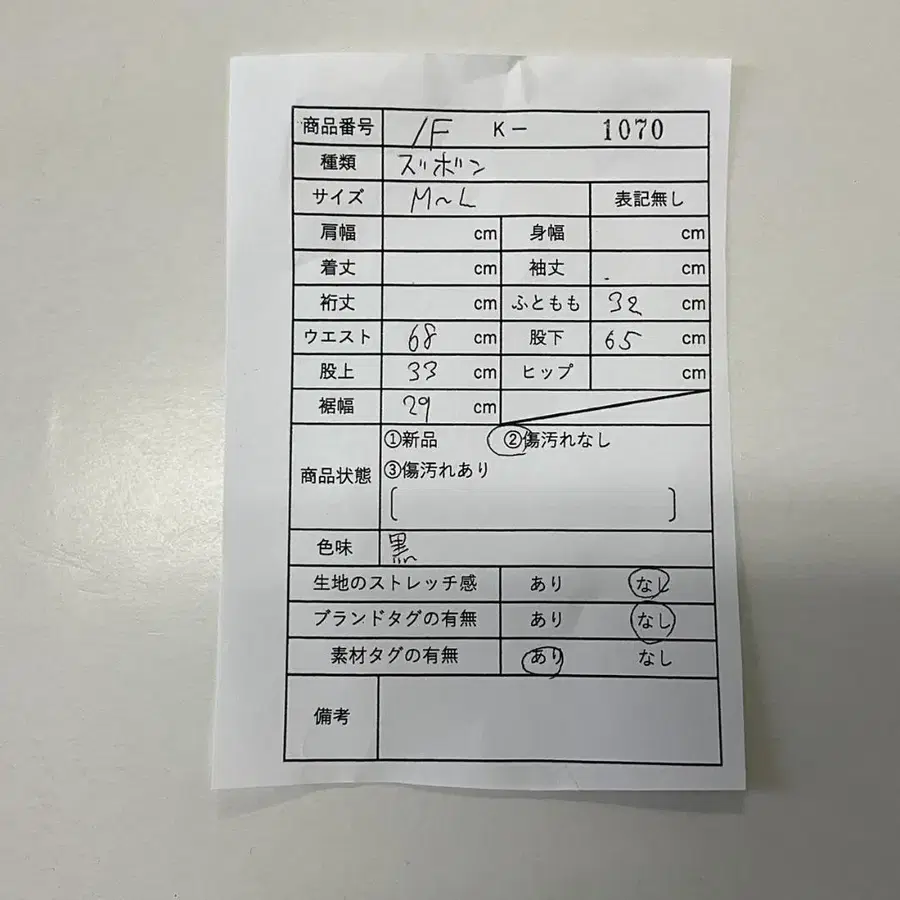 商品番号 1F K- 1070
種類 ズボン
サイズ M~L 表記無し
肩幅 cm 身幅 cm
着丈 cm 袖丈 cm
裄丈 cm ふともも 32 cm
ウエスト 68 cm 股下 65 cm
股上 33 cm ヒップ cm
裾幅 29 cm
商品状態 ①新品 ②傷汚れなし
③傷汚れあり
[ ]
色味 黒
生地のストレッチ感 あり なし
ブランドタグの有無 あり なし
素材タグの有無 あり なし
備考